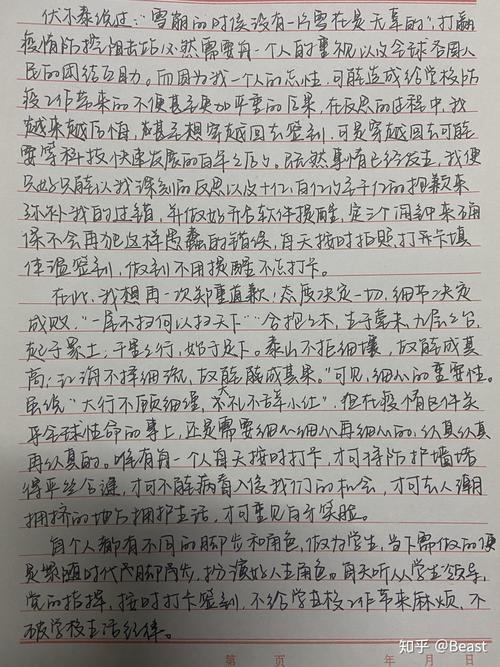 伏尔泰说过：“雪崩的时候没有一片雪花是无辜的”，打赢
疫情防控阻击战必然需要每一个人的重视以及全球各国人
民的团结互助。而因为我一个人的忘性，可能造成给学校防
疫工作带来的不便甚至更加严重的后果，在反思的过程中，我
越来越后悔，甚至想穿越回去签到，可是穿越回去可能
要等科技快速发展的百年之后。既然事情已经发生，我便
只好只能以我深刻的反思以及十亿，百亿乃至千亿的抱歉来
弥补我的过错，并做好开启软件提醒，定三个闹钟来确
保不会再犯这样愚蠢的错误，每天按时拍照，打开卡填
体温签到，做到不用提醒不忘打卡。
在此，我想再一次郑重道歉，态度决定一切，细节决定
成败，“一屋不扫何以扫天下”“合抱之木，生于毫末，九层之台，
起于累土，千里之行，始于足下。泰山不拒细壤，故能成其
高；江海不择细流，故能成其果。”可见，细心的重要性。
虽说“大行不顾细谨，大礼不辞小让”，但在疫情已件关
乎全球性命的事上，还是需要细心细心再细心的，认真认真
再认真的。唯有每一个人每天按时打卡，才可将防护墙堵
得严丝合缝，才可不能病毒入侵我们的机会，才可在人潮
拥挤的地方拥护生活，才可重见自实脸。
每个人都有不同的脚步和角色，做为学生，当下需做的便
是紧随时代脚步，扮演好人生角色。每天听从学生领导，
党的指挥，按时打卡签到，不给学校工作带来麻烦，不
破学校生活纪律。
第 页
年 月 日
知乎 @Beast